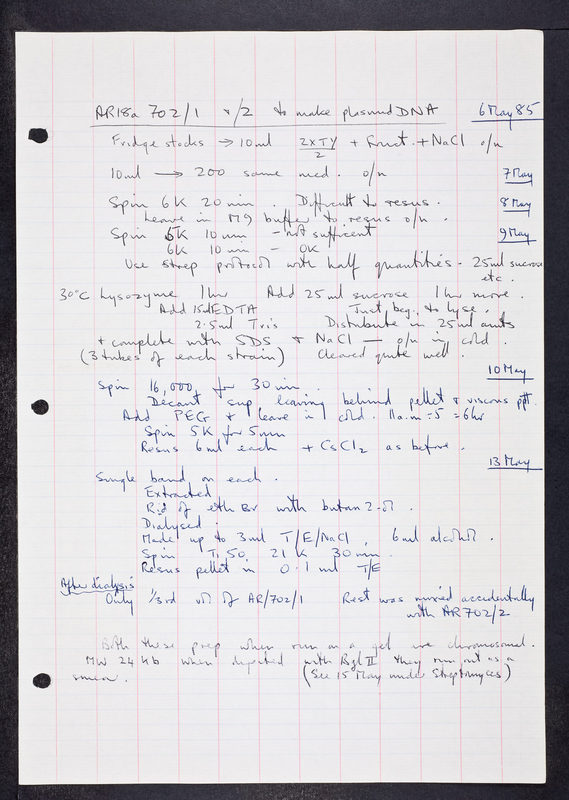 AR18a 702/1 + /2 to make plasmid DNA 6 May 85
Fridge stocks → 10ml 2xTY/2 + Fruct. + NaCl o/n
10ml → 200 same med. o/n 7 May
Spin 6K 20 min. Difficult to resus. 8 May
Leave in M9 buffer to resus o/n.
Spin 5K 10 min - not sufficent 9 May
6K 10 min - OK
Use strep protocol with half quantities - 25ml sucrose
etc.
30°C Lysozyme 1hr Add 25ml sucrose 1hr more.
Add 15ml EDTA Just beg. to lyse.
2.5ml Tris Distribute in 25ml amts
+ complete with SDS + NaCl — o/n in cold.
(3 tubes of each strain) Cleared quite well.
10 May
Spin 16,000 for 30 min.
Decant sup leaving behind pellet + viscous ppt.
Add PEG + leave in cold. 11a.m - 5 = 6hr
Spin 5K for 5 min
Resus 6ml each + CsCl2 as before.
13 May
Single band on each.
Extracted
Rid of eth Br with butan 2-ol.
Dialysed.
Made up to 3ml T/E/NaCl, 6ml alcohol.
Spin Ti50, 21K 30 min.
Resus pellet in 0.1 ml T/E
After dialysis
Only 1/3rd vol of AR/702/1 Rest was mixed accidentally
with AR702/2
Both these prep when run on a gel are chromosomal.
MW 24 kb when digested with Bgl II they run out as a
smear. (See 15 May under Streptomyces)